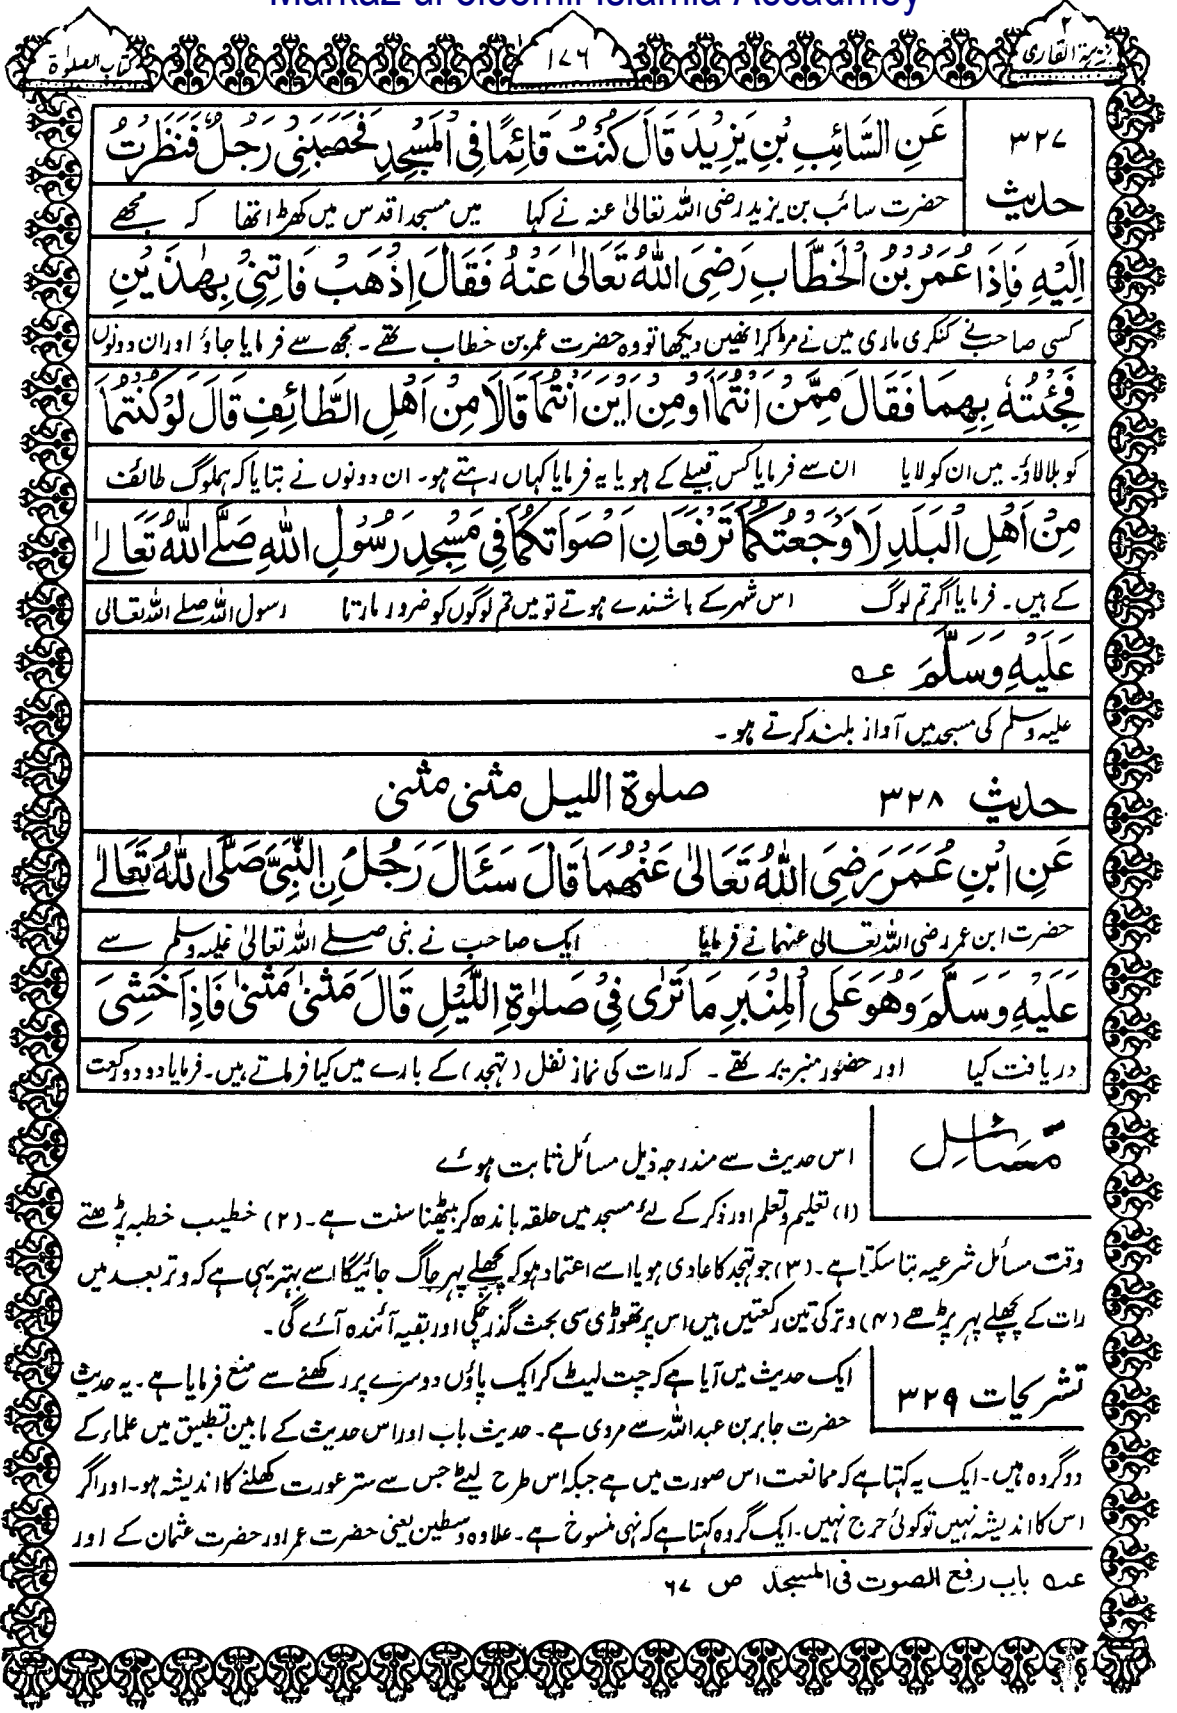 Markaz ul oloomil Islamia Accadmey
نزہۃ القاری ۲
۱۷۶
کتاب الصلوٰۃ
۳۲۷
حدیث
عَنِ السَّائِبِ بْنِ یَزِیْدَ قَالَ کُنْتُ قَائِمًا فِی الْمَسْجِدِ فَحَصَبَنِیْ رَجُلٌ فَنَظَرْتُ
حضرت سائب بن یزید رضی اللہ تعالیٰ عنہ نے کہا میں مسجد اقدس میں کھڑا تھا کہ مجھے
اِلَیْہِ فَاِذَا عُمَرُ بْنُ الْخَطَّابِ رَضِیَ اللّٰہُ تَعَالٰی عَنْہُ فَقَالَ اِذْھَبْ فَاتِنِیْ بِھٰذَیْنِ
کسی صاحب نے کنکری ماری میں نے مڑ کر انھیں دیکھا تو وہ حضرت عمر بن خطاب تھے ۔ مجھ سے فرمایا جاؤ اور ان دونوں
فَجِئْتُہٗ بِھِمَا فَقَالَ مِمَّنْ اَنْتُمَا اَوْ مِنْ اَیْنَ اَنْتُمَا قَالَا مِنْ اَھْلِ الطَّائِفِ قَالَ لَوْ کُنْتُمَا
کو بلا لاؤ۔ میں ان کو لایا ان سے فرمایا کس قبیلے کے ہو یا یہ فرمایا کہاں رہتے ہو۔ ان دونوں نے بتایا کہ ہملوگ طائف
مِنْ اَھْلِ الْبَلَدِ لَاَوْجَعْتُکُمَا تَرْفَعَانِ اَصْوَاتَکُمَا فِیْ مَسْجِدِ رَسُوْلِ اللّٰہِ صَلَّے اللّٰہُ تَعَالٰے
کے ہیں۔ فرمایا اگر تم لوگ اس شہر کے باشندے ہوتے تو میں تم لوگوں کو ضرور مارتا رسول اللہ صلے اللہ تعالی
عَلَیْہِ وَسَلَّمَ عہ
علیہ وسلم کی مسجد میں آواز بلند کرتے ہو ۔
حدیث ۳۲۸ صلوة اللیل مثنی مثنی
عَنِ ابْنِ عُمَرَ رَضِیَ اللّٰہُ تَعَالٰی عَنْھُمَا قَالَ سَئَالَ رَجُلُ نِ النَّبِیَّ صَلَّی اللّٰہُ تَعَالٰے
حضرت ابن عمر رضی اللہ تعالی عنہما نے فرمایا ایک صاحب نے نبی صلے اللہ تعالیٰ علیہ وسلم سے
عَلَیْہِ وَسَلَّمَ وَھُوَ عَلَی الْمِنْبَرِ مَا تَرٰی فِیْ صَلٰوۃِ اللَّیْلِ قَالَ مَثْنٰی مَثْنٰی فَاِذَا خَشِیَ
دریافت کیا اور حضور منبر پر تھے ۔ کہ رات کی نماز نفل (تہجد) کے بارے میں کیا فرماتے ہیں۔ فرمایا دو دو رکعت
مسائل
اس حدیث سے مندرجہ ذیل مسائل ثابت ہوئے
(۱) تعلیم و تعلم اور ذکر کے لئے مسجد میں حلقہ باندھ کر بیٹھنا سنت ہے ۔ (۲) خطیب خطبہ پڑھتے
وقت مسائل شرعیہ بتا سکتا ہے ۔ (۳) جو تہجد کا عادی ہو یا اسے اعتماد ہو کہ پچھلے پہر جاگ جائیگا اسے بہتر یہی ہے کہ وتر بعد میں
رات کے پچھلے پہر پڑھے (۴) وتر کی تین رکعتیں ہیں اس پر تھوڑی سی بحث گذر چکی اور بقیہ آئندہ آئے گی ۔
تشریحات ۳۲۹
ایک حدیث میں آیا ہے کہ چت لیٹ کر ایک پاؤں دوسرے پر رکھنے سے منع فرمایا ہے ۔ یہ حدیث
حضرت جابر بن عبد اللہ سے مروی ہے ۔ حدیث باب اور اس حدیث کے مابین تطبیق میں علماء کے
دو گروہ ہیں ۔ ایک یہ کہتا ہے کہ ممانعت اس صورت میں ہے جبکہ اس طرح لیٹے جس سے ستر عورت کھلنے کا اندیشہ ہو ۔ اور اگر
اس کا اندیشہ نہیں تو کوئی حرج نہیں ۔ ایک گروہ کہتا ہے کہ نہی منسوخ ہے ۔ علاوہ وسطین یعنی حضرت عمر اور حضرت عثمان کے اور
عہ باب رفع الصوت فی المسجد ص ۶۷